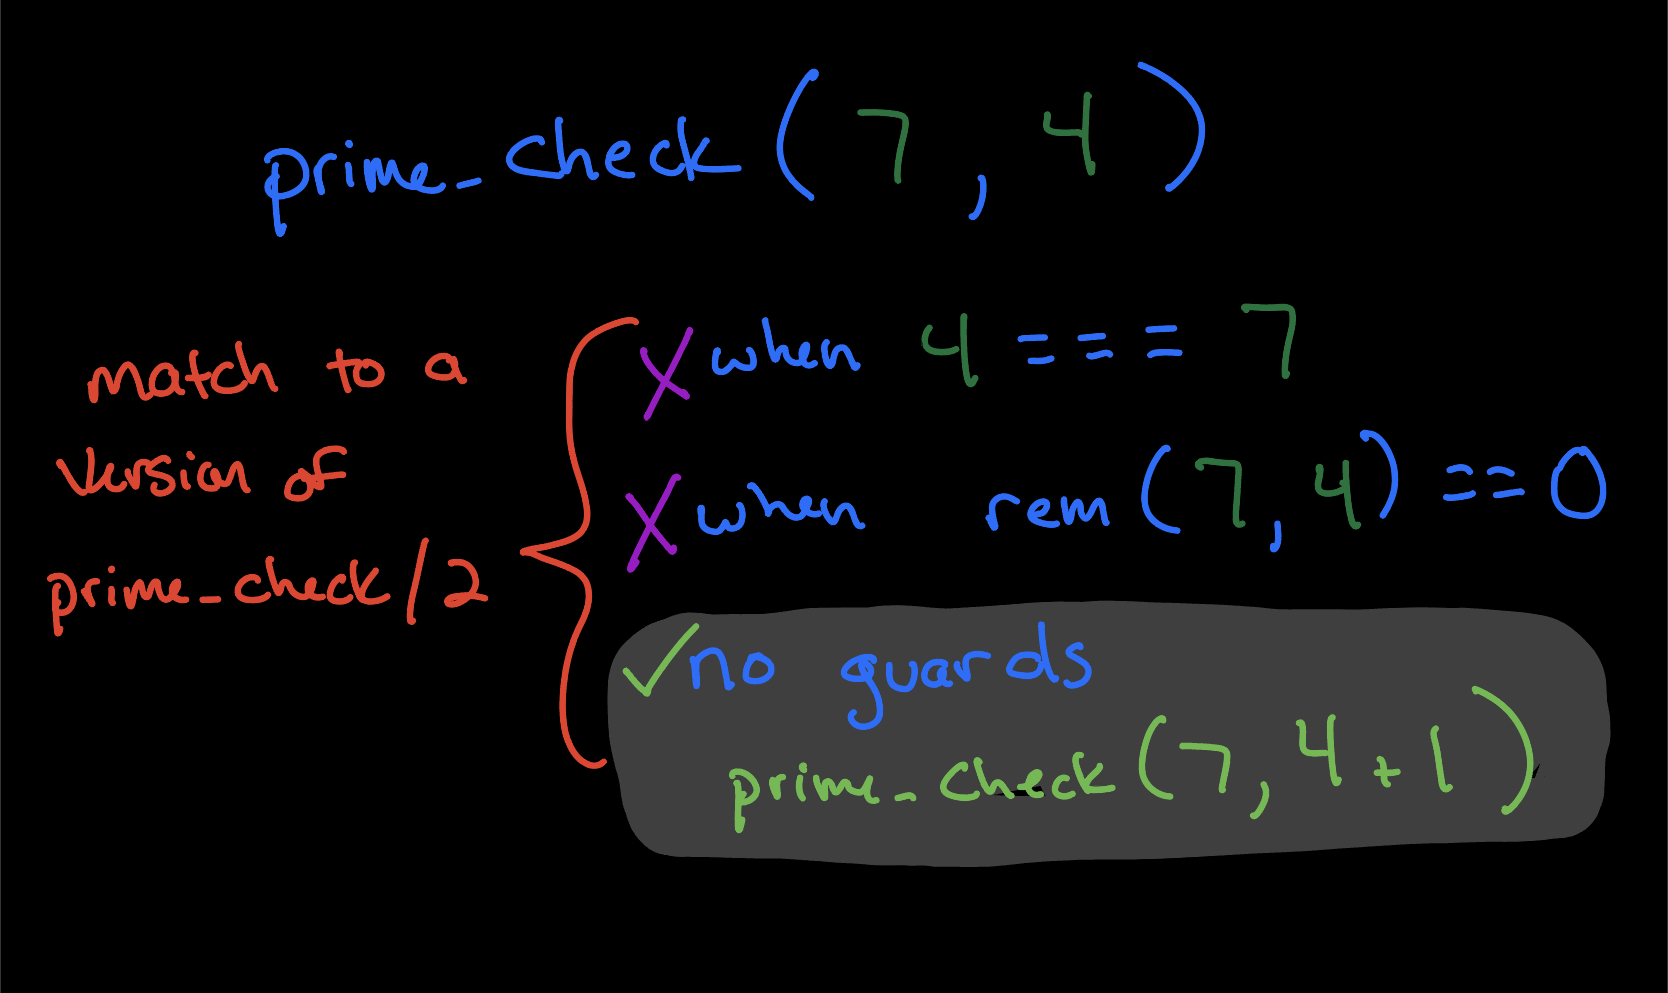 prime_check(7, 4)
match to a
version of
prime_check/2
X when 4 === 7
X when rem(7,4) == 0
✓ no guards
prime_check(7, 4+1)